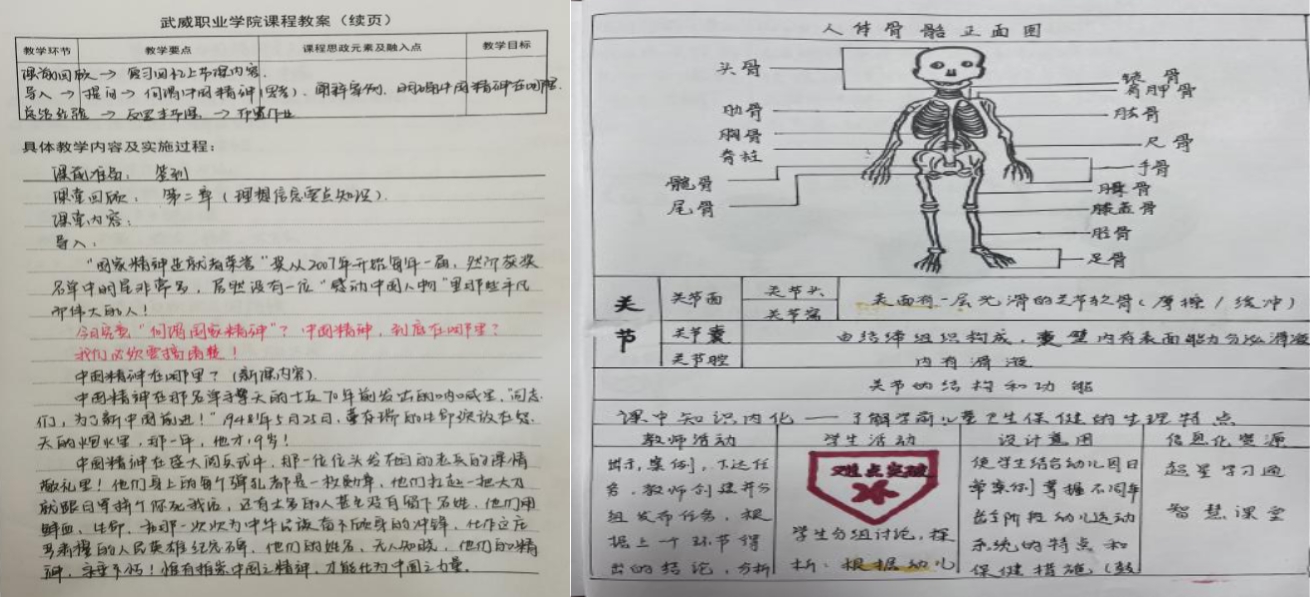 武威职业学院课程教案（续页）
教学环节 教学要点 课程思政元素及融入点 教学目标
课前回顾 → 复习回忆上节课内容.
导入 → 提问 → 何谓中国精神(思考). 阐释案例. 明确中国精神在哪里.
总结 → 反思本节课. → 布置作业
具体教学内容及实施过程：
课前准备： 签到
课堂回顾： 第二章（理想信念要点知识）.
课堂内容：
导入：
"国家精神造就者荣誉"是从2007年开始每年一届，然所获奖
名单中明星非常多，居然没有一位"感动中国人物"里那些平凡
而伟大的人！
今日我要"何谓国家精神"？中国精神，到底在哪里？
我们必须要搞清楚！
中国精神在哪里？（新课内容）.
中国精神在那名举手擎天的士兵70年前发出的呐喊里，"同志
们，为了新中国前进！"1948年5月25日，董存瑞的生命绽放在
天的烟火里，那一年，他才19岁！
中国精神在盛大阅兵式中，那一位位头发花白的老兵的深情
敬礼里！他们身上的每个弹孔都是一枚勋章，他们扛起一把大刀
就跟日军拼个你死我活，还有太多的人甚至没有留下名姓，他们用
鲜血、生命，和那一次次为中华民族奋不顾身的冲锋，化作这座
的人民英雄纪念碑，他们的姓名，无人知晓，他们的精
神，永垂不朽！惟有推崇中国之精神，才能化为中国之力量.
人体骨骼正面图
头骨
肋骨
胸骨
脊柱
髋骨
尾骨
锁骨
肩胛骨
肱骨
尺骨
手骨
髌骨
膝盖骨
胫骨
足骨
关节
关节面 关节头 关节窝 表面有一层光滑的关节软骨(摩擦/缓冲)
关节囊 由结缔组织构成，囊壁内有表面能分泌滑液
关节腔 内有滑液
关节的结构和功能
课中知识内化——了解学前儿童卫生保健的生理特点
教师活动 学生活动 设计意图 信息化资源
出示案例，下达任
务，教师创建并分
组发布任务，根
据上一个环节得
出的结论，分析
难点突破
学生分组讨论，探
析：根据幼儿
使学生结合幼儿园日
常案例掌握不同年
龄阶段幼儿运动
系统的特点和
保健措施（鼓
超星学习通
智慧课堂